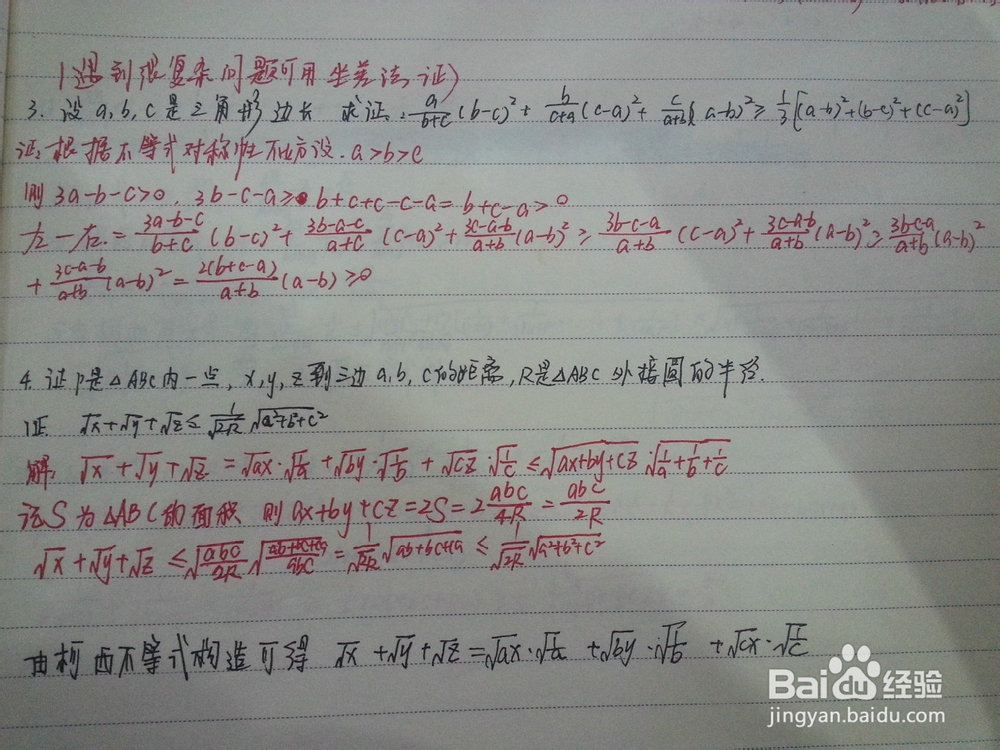 (遇到很复杂问题可用坐差法证)
3. 设a,b,c是三角形边长 求证: a/(b+c) (b-c)² + b/(c+a) (c-a)² + c/(a+b) (a-b)² ≥ 1/3[(a-b)²+(b-c)²+(c-a)²]
证: 根据不等式对称性不妨设. a>b>c
则 3a-b-c>0, 3b-c-a≥ b+c+c-c-a = b+c-a>0
左-右 = (3a-b-c)/(b+c) (b-c)² + (3b-a-c)/(a+c) (c-a)² + (3c-a-b)/(a+b) (a-b)² ≥ (3b-c-a)/(a+b) (c-a)² + (3c-a-b)/(a+b) (a-b)² ≥ (3b-c-a)/(a+b) (a-b)²
+ (3c-a-b)/(a+b) (a-b)² = 2(b+c-a)/(a+b) (a-b) ≥0
4. 证 P是△ABC内一点, x,y,z到三边a,b,c的距离, R是△ABC外接圆的半径.
证 √x+√y+√z ≤ 1/√2R √a²+b²+c²
解: √x+√y+√z = √ax·√1/a + √by·√1/b + √cz·√1/c ≤ √ax+by+cz · √1/a+1/b+1/c
记S为△ABC的面积 则 ax+by+cz=2S=2 abc/4R = abc/2R
√x+√y+√z ≤ √abc/2R √(ab+bc+ca)/abc = 1/√2R √ab+bc+ca ≤ 1/√2R √a²+b²+c²
由柯西不等式构造可得 √x+√y+√z = √ax·√1/a + √by·√1/b + √cx·√1/c
Baidu经验
jingyan.baidu.com